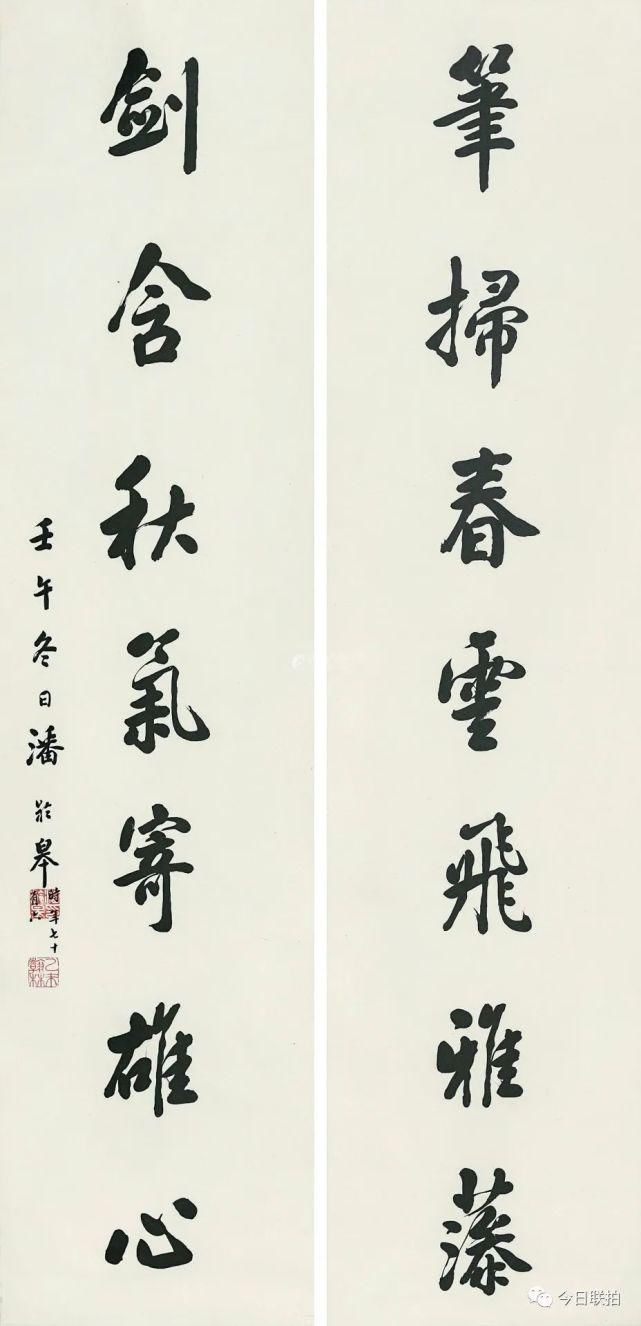 筆掃春雲飛雅藻
劍含秋氣寄雄心
壬午冬日潘齡皋
時年七十有六
乙未翰林
今日联拍